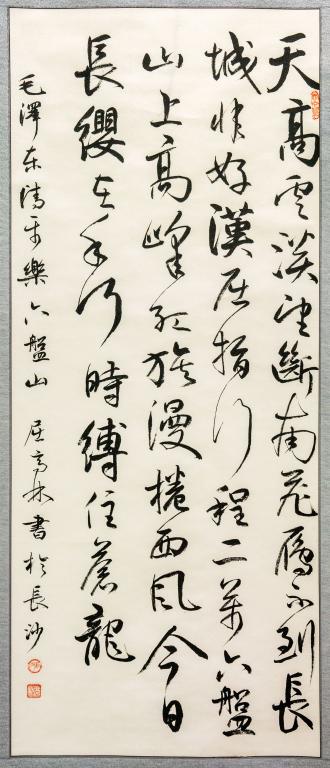 天高雲淡望斷南飛雁不到長
城非好漢屈指行程二萬六盤
山上高峰紅旗漫捲西風今日
長纓在手何時縛住蒼龍
毛澤東清平樂六盤山 屈林書於長沙